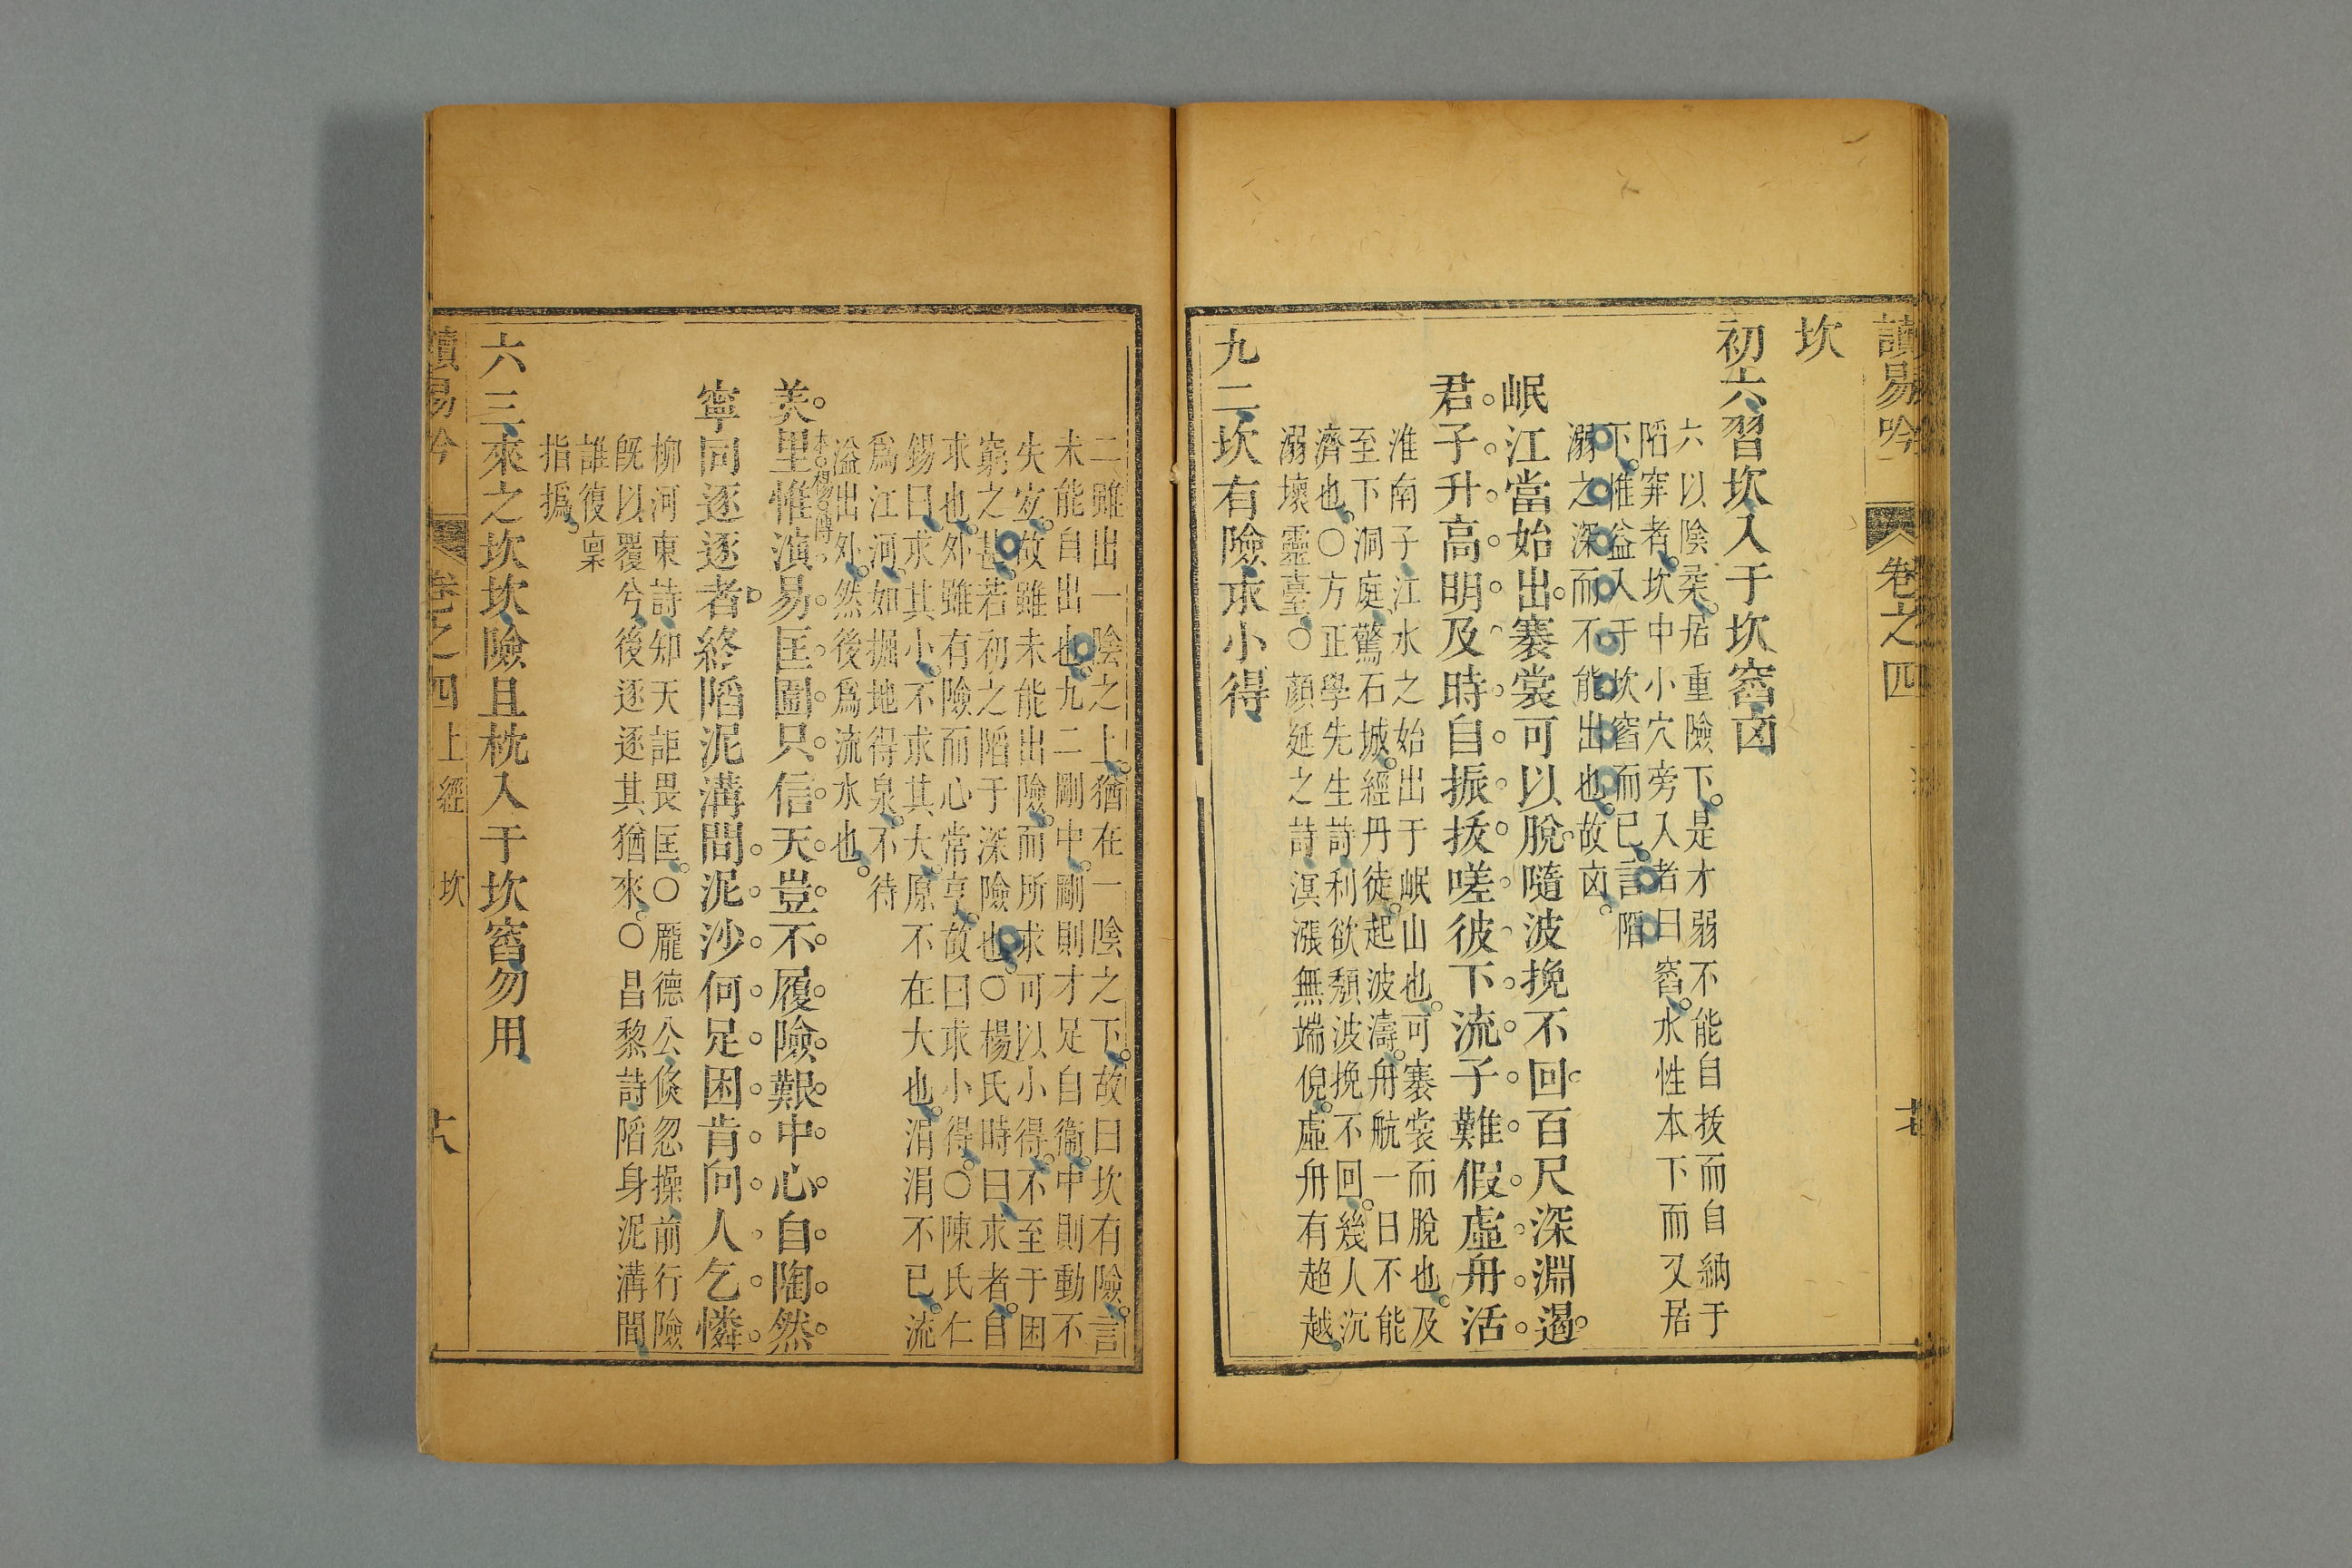 讀易吟
卷之四
坎
初六習坎入于坎窞凶
六以陰柔居重險下是才弱不能自拔而自納于
陷穽者坎中小穴旁入者曰窞水性本下而又居
下惟益入于坎窞而已言陷
溺之深而不能出也故凶
岷江當始出褰裳可以脫隨波挽不回百尺深淵遏
君子升高明及時自振拔嗟彼下流子難假虛舟活
淮南子江水之始出于岷山也可褰裳而脫也及
至下洞庭驚石城經丹徒起波濤舟航一日不能
濟也○方正學先生詩利欲頹波挽不回幾人沉
溺壞靈臺○顏延之詩溟漲無端倪虛舟有超越
九二坎有險求小得
二雖出一陰之上猶在一陰之下故曰坎有險言
未能自出也九二剛中剛則才足自衞中則動不
失宜故雖未能出險而所求可以小得不至于困
窮之甚若初之陷于深險也○楊氏時曰求者自
求也外雖有險而心常亨故曰求小得○陳氏仁
錫曰求其小不求其大原不在大也涓涓不已流
爲江河如掘地得泉不待
溢出外然後爲流水也
羑里惟演易匡圄只信天豈不履險艱中心自陶然
本楊傳
寧同逐逐者終陷泥溝間泥沙何足困肯向人乞憐
柳河東詩知天詎畏匡○龐德公倏忽操前行險
旣以覆兮後逐逐其猶來○昌黎詩陷身泥溝間
誰復稟
指撝
六三來之坎坎險且枕入于坎窞勿用
讀易吟
卷之四上經
坎
十八